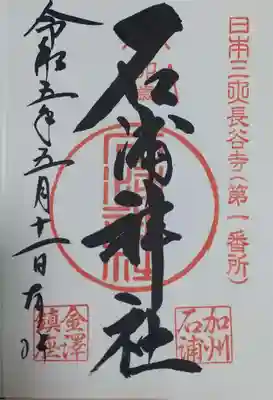 日本三所長谷寺(第一番所)
石浦神社
令和五年五月十一日
加州
石浦
金澤
鎮座